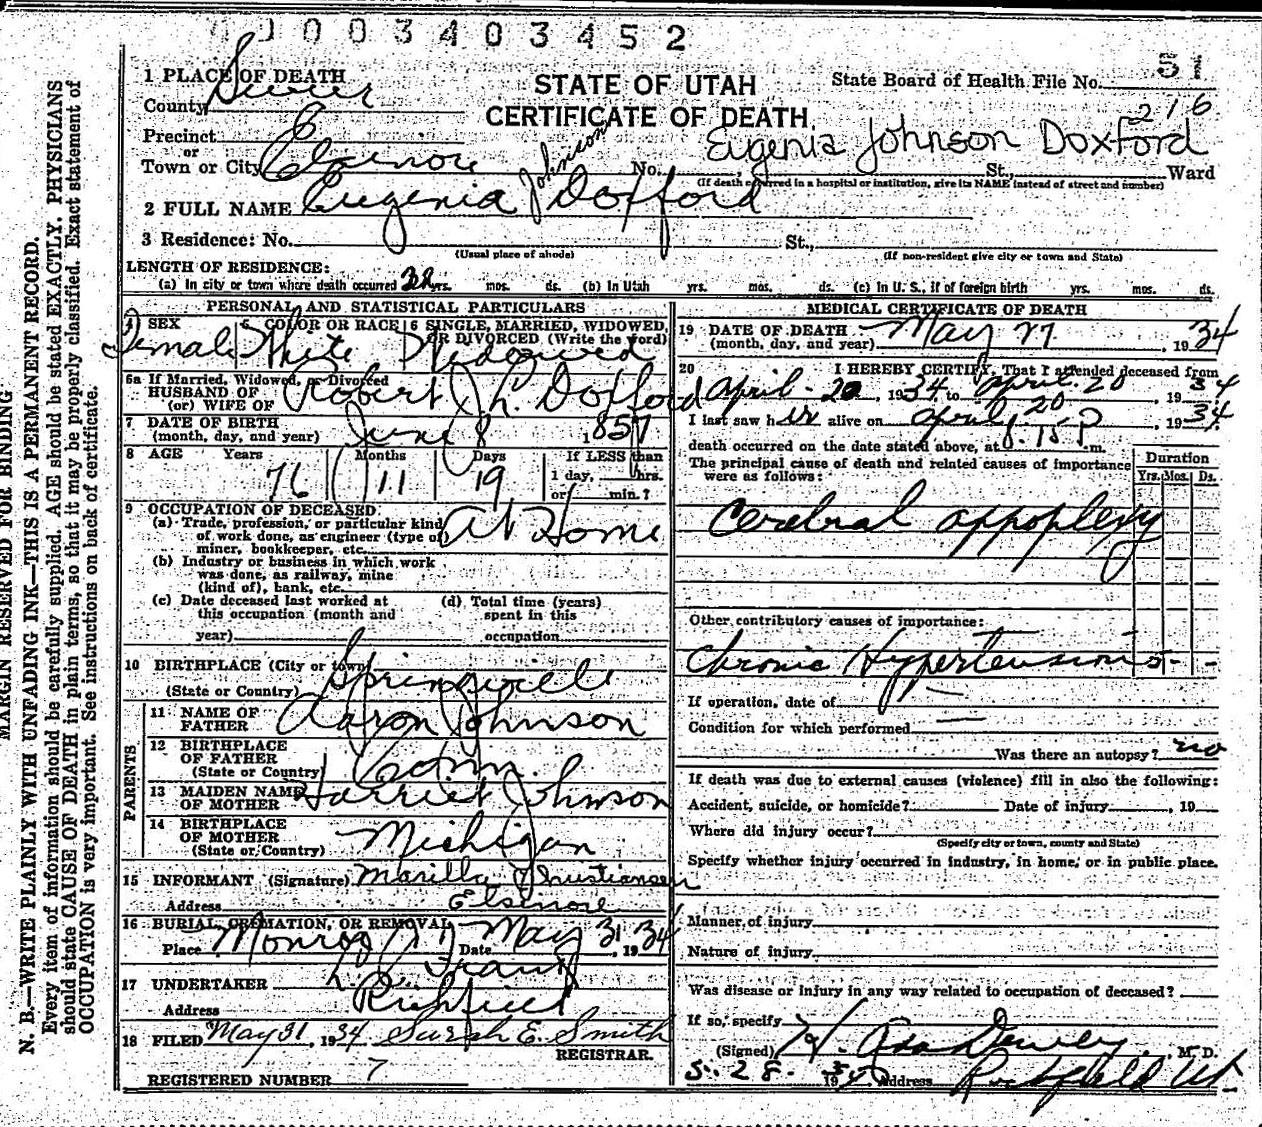 0003403452
1 PLACE OF DEATH
County Sevier
STATE OF UTAH
CERTIFICATE OF DEATH
State Board of Health File No. 51
216
Precinct
or
Town or City Elsinore No. St., Ward
Eugenia Johnson Doxford
(If death occurred in a hospital or institution, give its NAME instead of street and number)
2 FULL NAME Eugenia Johnson Doxford
3 Residence: No. St.,
(Usual place of abode) (If non-resident give city or town and State)
LENGTH OF RESIDENCE:
(a) In city or town where death occurred 32 yrs. mos. ds. (b) In Utah yrs. mos. ds. (c) In U. S., if of foreign birth yrs. mos. ds.
PERSONAL AND STATISTICAL PARTICULARS
4 SEX 5 COLOR OR RACE 6 SINGLE, MARRIED, WIDOWED,
OR DIVORCED (Write the word)
Female White Widowed
6a If Married, Widowed, or Divorced
HUSBAND OF
(or) WIFE OF Robert J. L. Doxford
7 DATE OF BIRTH
(month, day, and year) June 8 1857
8 AGE Years Months Days If LESS than
1 day, hrs.
or min.?
76 11 19
9 OCCUPATION OF DECEASED:
(a) Trade, profession, or particular kind
of work done, as engineer (type of)
miner, bookkeeper, etc. At Home
(b) Industry or business in which work
was done, as railway, mine
(kind of), bank, etc.
(c) Date deceased last worked at
this occupation (month and
year)
(d) Total time (years)
spent in this
occupation
10 BIRTHPLACE (City or town) Springville
(State or Country)
PARENTS
11 NAME OF
FATHER Aaron Johnson
12 BIRTHPLACE
OF FATHER
(State or Country) Conn.
13 MAIDEN NAME
OF MOTHER Harriet Johnson
14 BIRTHPLACE
OF MOTHER
(State or Country) Michigan
15 INFORMANT (Signature) Marilla Christiansen
Address Elsinore
16 BURIAL, CREMATION, OR REMOVAL
Place Monroe Date May 31, 1934
17 UNDERTAKER
Address Richfield
18 FILED May 31, 1934 Sarah E. Smith
REGISTRAR.
REGISTERED NUMBER 7
MEDICAL CERTIFICATE OF DEATH
19 DATE OF DEATH
(month, day, and year) May 27, 1934
20 I HEREBY CERTIFY, That I attended deceased from
April 20, 1934 to April 20, 1934
I last saw her alive on April 20, 1934
death occurred on the date stated above, at 8:15 P m.
The principal cause of death and related causes of importance
were as follows:
Duration
Yrs. Mos. Ds.
Cerebral appoplexy
Other contributory causes of importance:
Chronic Hypertension 5 - -
If operation, date of
Condition for which performed
Was there an autopsy? no
If death was due to external causes (violence) fill in also the following:
Accident, suicide, or homicide? Date of injury , 19
Where did injury occur?
(Specify city or town, county and State)
Specify whether injury occurred in industry, in home, or in public place.
Manner of injury
Nature of injury
Was disease or injury in any way related to occupation of deceased?
If so, specify
(Signed) H. Asa Dewey, M. D.
5-28-1934 Address Richfield Ut
MARGIN RESERVED FOR BINDING
N. B.—WRITE PLAINLY WITH UNFADING INK—THIS IS A PERMANENT RECORD.
Every item of information should be carefully supplied. AGE should be stated EXACTLY. PHYSICIANS
should state CAUSE OF DEATH in plain terms, so that it may be properly classified. Exact statement of
OCCUPATION is very important. See instructions on back of certificate.